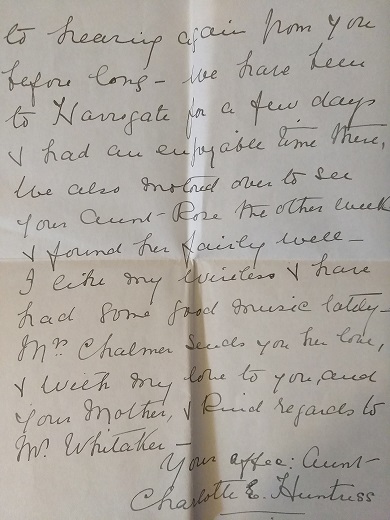 to hearing again from you
before long - We have been
to Harrogate for a few days
& had an enjoyable time there,
We also motred over to see
your Aunt - Rose the other week
& found her fairly well -
I like my wireless & have
had some good music lately -
Mrs Chalmer sends you her love,
& with my love to you, and
your Mother, & kind regards to
Mr. Whitaker -
Your affec: Aunt -
Charlotte E. Huntriss